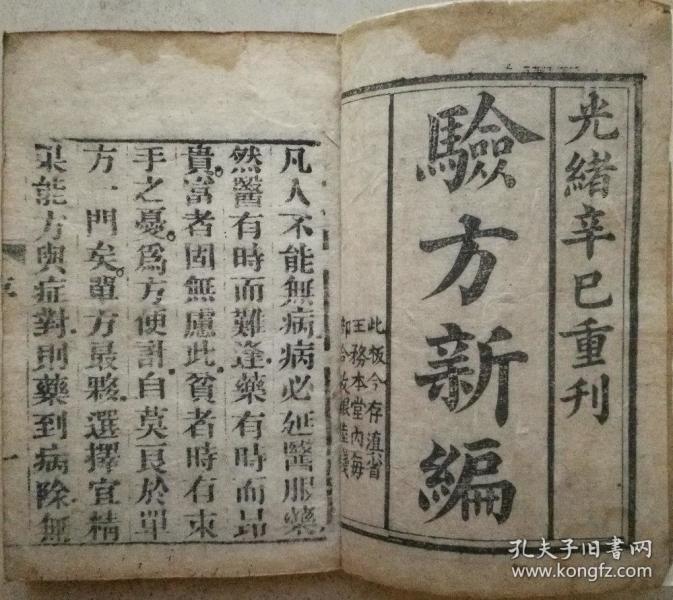 光緒辛巳重刊
驗方新編
此板今存滇省
王務本堂內每
凡人不能無病病必延醫服藥
然醫有時而難逢藥有時而昂
貴富者固無慮此貧者時有束
手之憂爲方便計自莫良於單
方一門矣單方最夥選擇宜精
果能方與症對則藥到病除無
序
一
孔夫子旧书网
www.kongfz.com